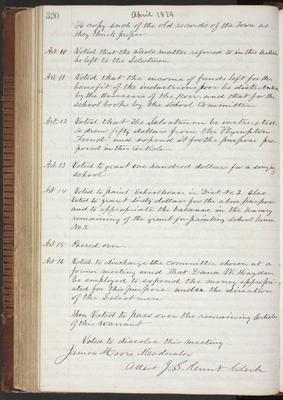 320
April 1879
To copy such of the old records of the Town as
they think proper
Art. 10 Voted that the whole matter referred to in this Article
be left to the Selectmen
Art. 11 Voted that the income of funds left for the
benefit of the industrious poor be distributed
by the Overseers of the poor and that for the
school books by the School Committee
Art. 12 Voted that the Selectmen be instructed
to draw fifty dollars from the "Plympton
Fund" and expend it for the purpose pro-
posed in this Article
Art. 13 Voted to grant one hundred dollars for a singing
school
Art 14 Voted to paint Schoolhouse in Dist. No. 2. Also
Voted to grant sixty dollars for the above purpose
and to appropriate the balance in the treasury
remaining of the grant for painting school house
No. 3.
Art 15 Passed over
Art 16 Voted to discharge the committee chosen at a
former meeting and that Dana W. Hayden
be employed to expend the money appropri-
ated for this purpose under the direction
of the Selectmen
Then Voted to pass over the remaining Articles
of this warrant
Voted to dissolve this meeting
James Moore, Moderator
Attest J. S. Hunt Clerk